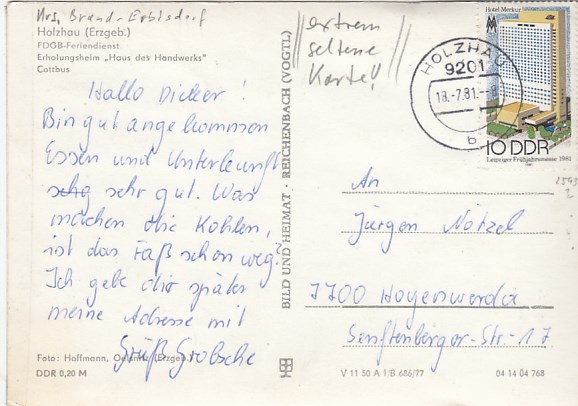 Krs. Brand-Erbisdorf
Holzhau (Erzgeb.)
FDGB-Feriendienst
Erholungsheim „Haus des Handwerks"
Cottbus
Hallo Dicker!
Bin gut angekommen
Essen und Unterkunft
sehg sehr gut. Was
machen die Kohlen,
ist das Faß schon weg?
Ich gebe dir später
meine Adresse mit
Gruß
Foto: Hoffmann, (Erzgeb.)
DDR 0,20 M
BILD UND HEIMAT · REICHENBACH (VOGTL)
extrem
seltene
Karte!!
HOLZHAU
9201
18.-7.81.--8
b
Hotel Merkur
MM
10 DDR
Leipziger Frühjahrsmesse 1981
An
Jürgen Nötzel
7700 Hoyerswerda
Senftenberger-Str.-17
V 11 50 A 1/B 686/77
04 14 04 768